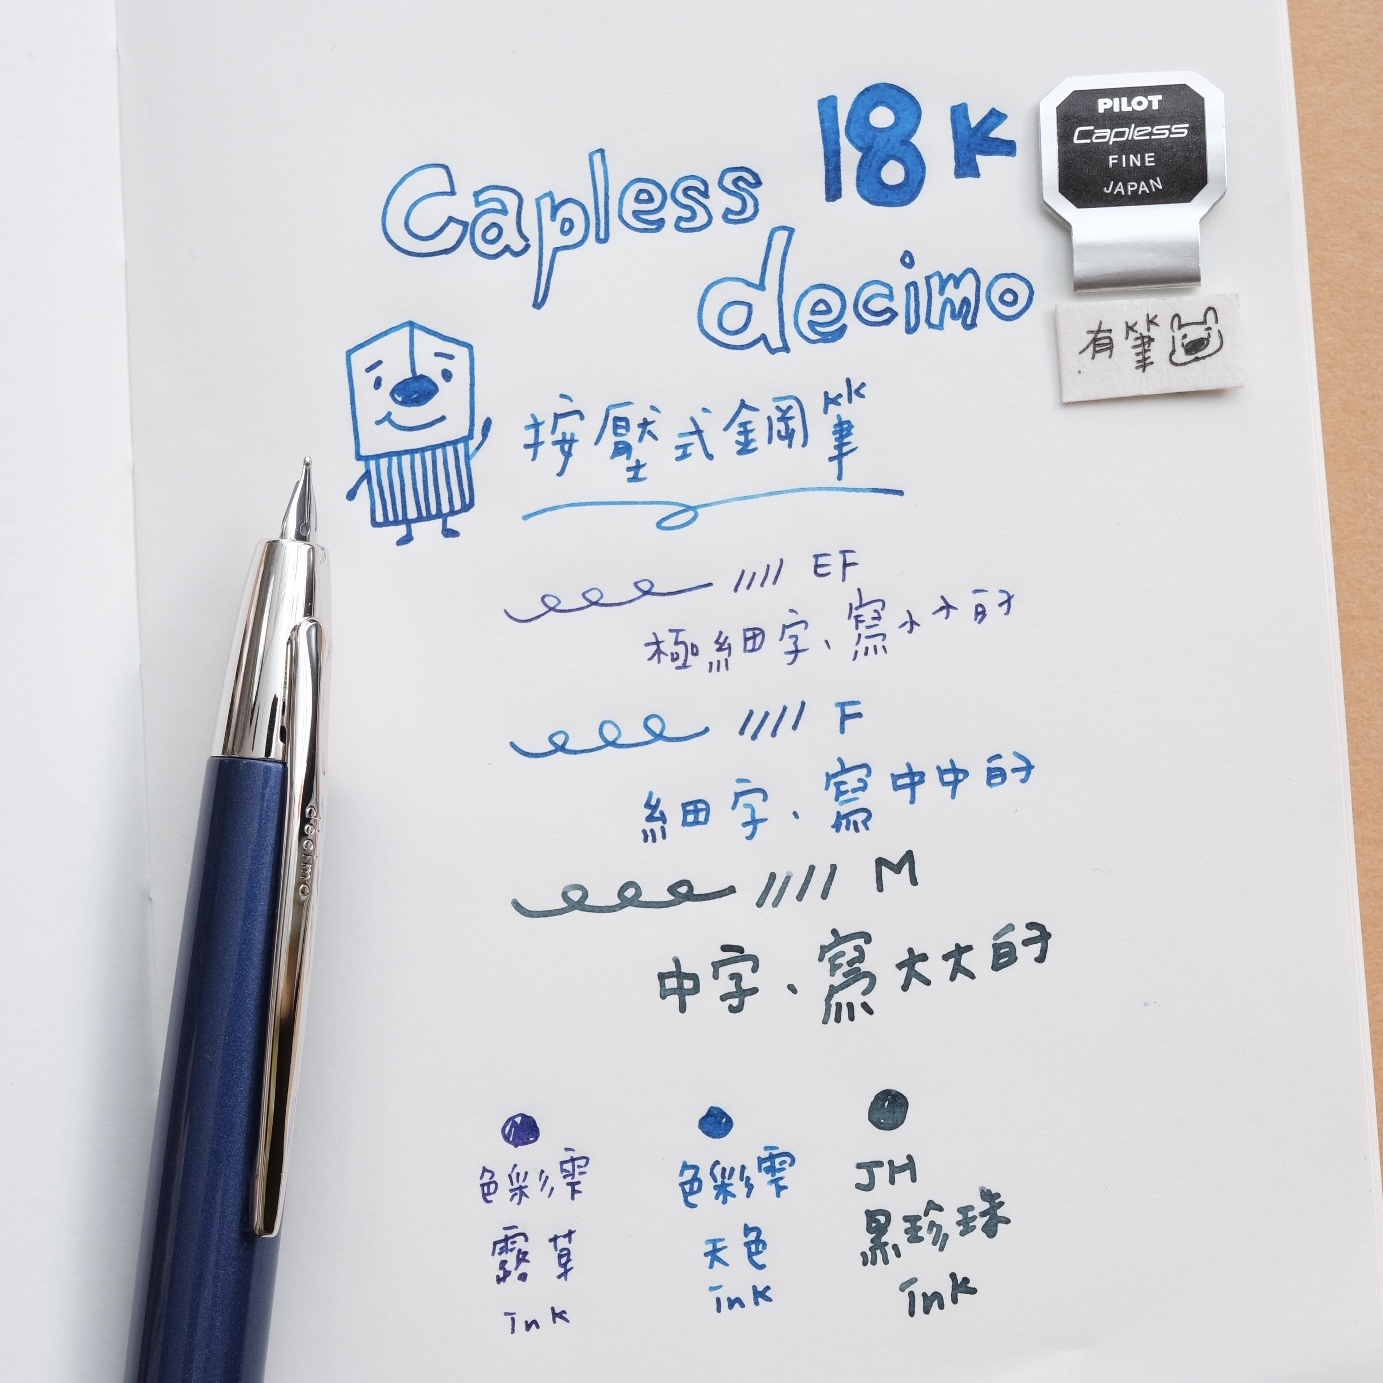 18K
Capless
decimo
PILOT
Capless
FINE
JAPAN
有筆
按壓式鋼筆
EF
極細字、寫小小的
F
細字、寫中中的
M
中字、寫大大的
decimo
色彩雫
露草
ink
色彩雫
天色
ink
JH
黑珍珠
ink